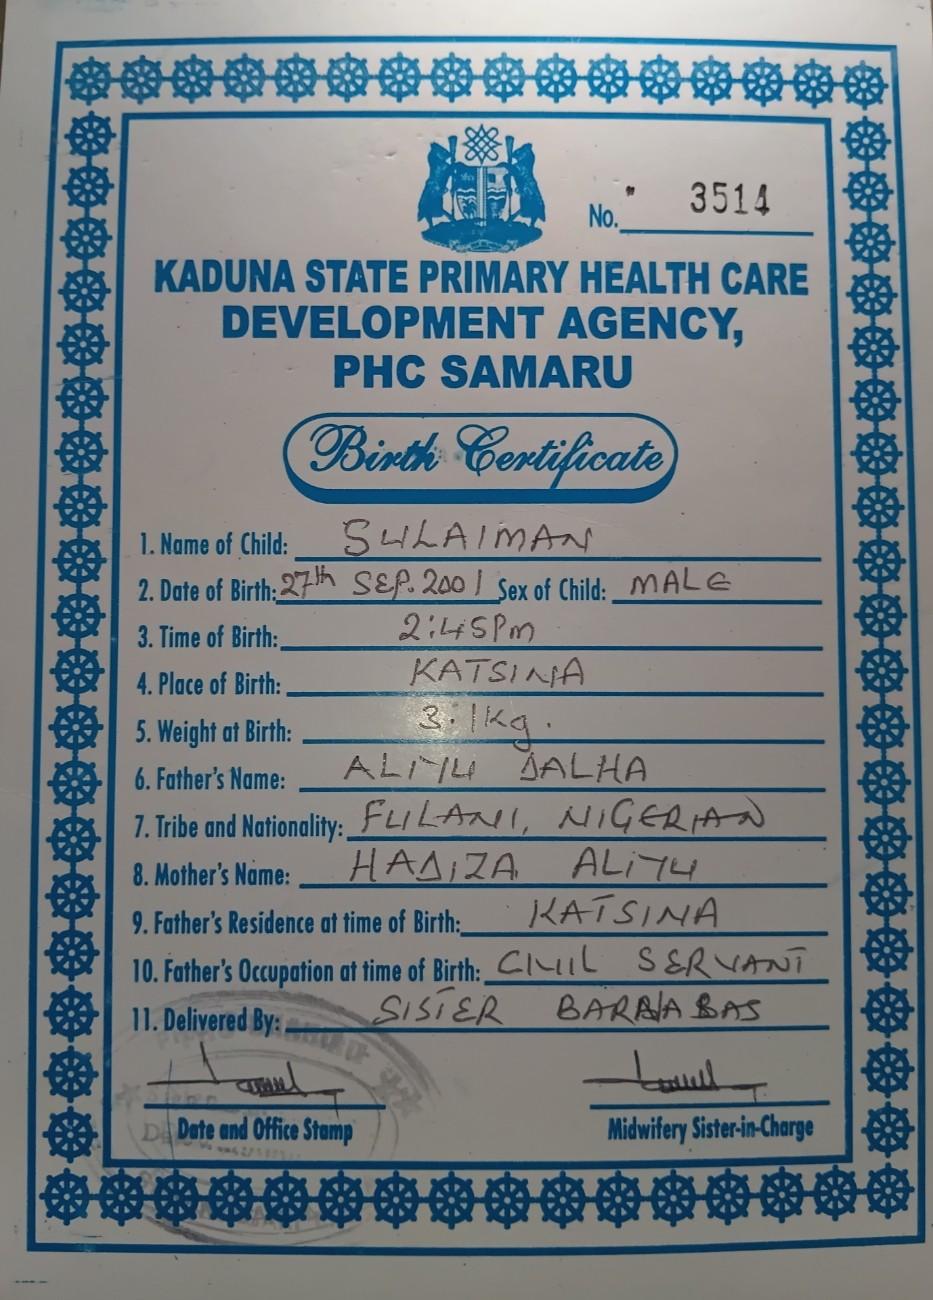 No. 3514
KADUNA STATE PRIMARY HEALTH CARE
DEVELOPMENT AGENCY,
PHC SAMARU
Birth Certificate
1. Name of Child: SULAIMAN
2. Date of Birth: 27th SEP. 2001 Sex of Child: MALE
3. Time of Birth: 2:45Pm
4. Place of Birth: KATSINA
5. Weight at Birth: 3.1kg.
6. Father's Name: ALIYU DALHA
7. Tribe and Nationality: FULANI, NIGERIAN
8. Mother's Name: HADIZA ALIYU
9. Father's Residence at time of Birth: KATSINA
10. Father's Occupation at time of Birth: CIVIL SERVANT
11. Delivered By: SISTER BARNABAS
Date and Office Stamp Midwifery Sister-in-Charge